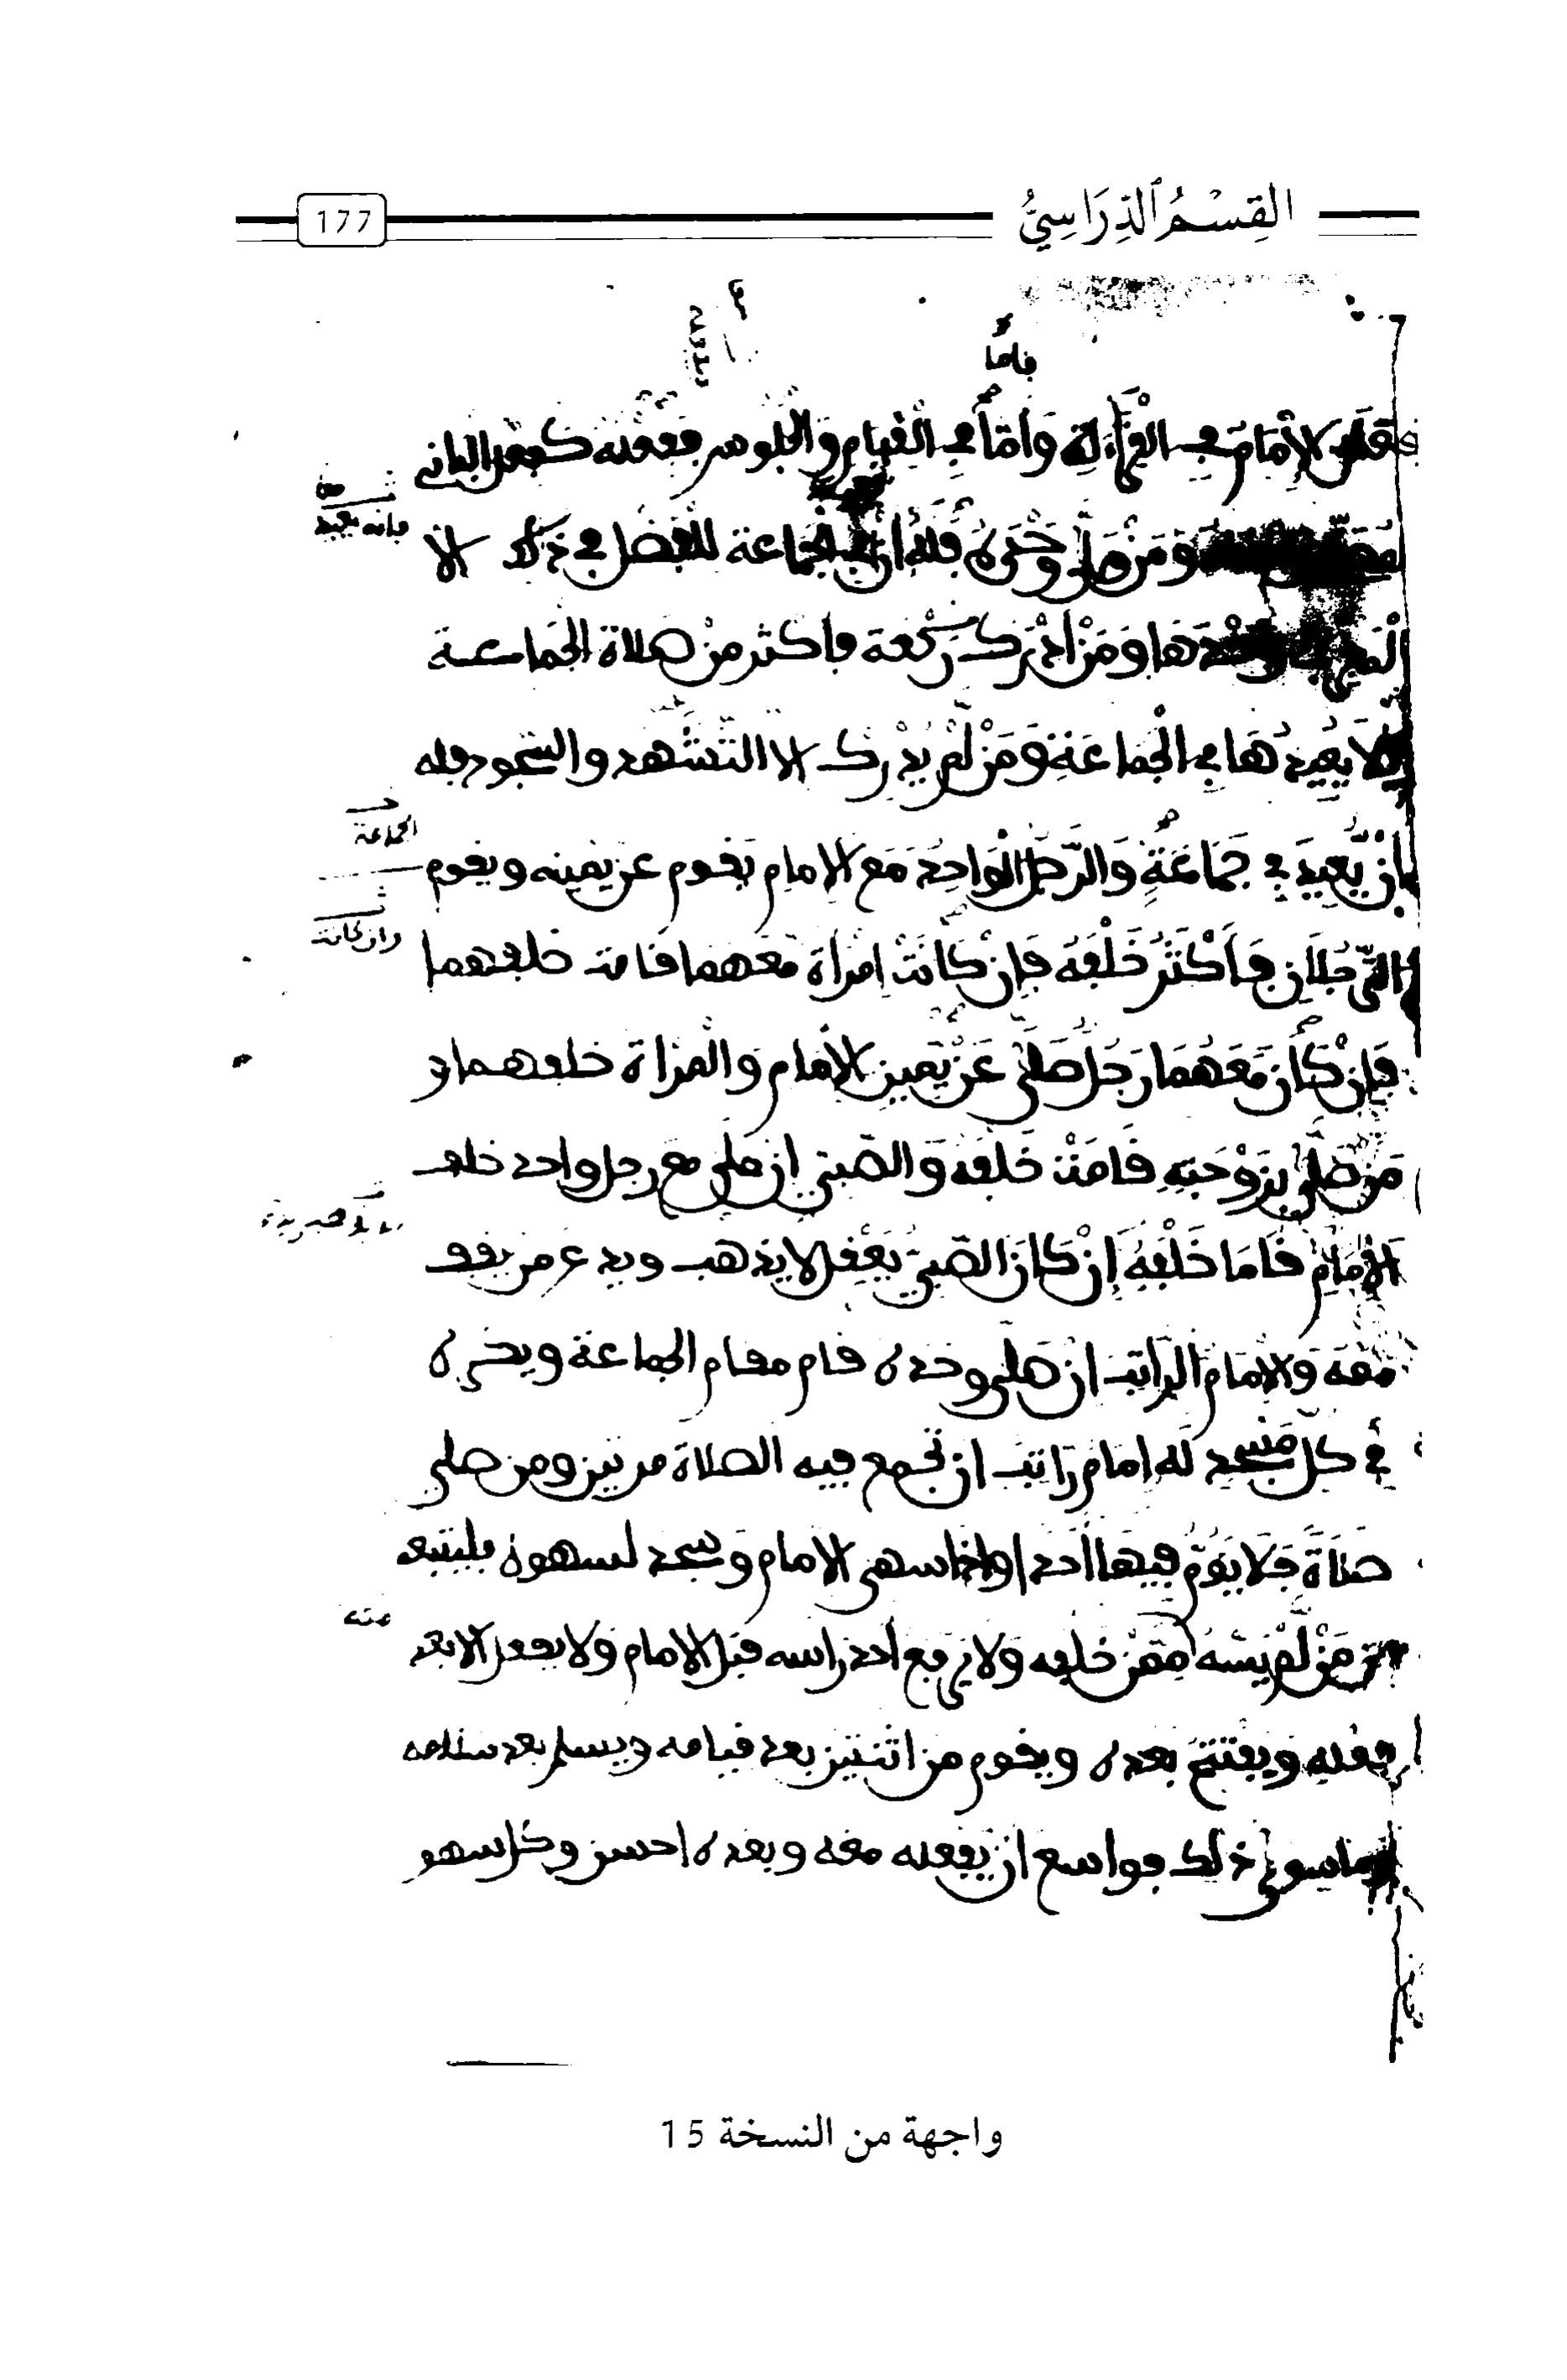 القِسْمُ الدِّرَاسِيُّ
177
فاما
الإمام في القراءة وأما في القيام والجلوس ففعله كفعل الباني
ومَن صلى وحده فله أن في الجماعة للفضل في ذلك الا
فإنه يعيد
وحدها ومَنْ ادْرك ركعة فاكثر مِنْ صلاة الجماعة
فلا يُعِيدُهَا في الْجَماعَةِ وَمَنْ لَمْ يدْرك الا التشَهد والسجود فله
أنْ يُّعِيدَ في جَمَاعَةٍ وَالرَّجل الْوَاحِد مَعَ الإمام يَقوم عن يمينه ويقوم
الجماعة
الرَّجُلَانِ فَأَكْثَرُ خَلْفَهُ فَإِنْ كَانَتْ امْرَأة مَعَهما قَامت خلفهما
وان كانت
فَإِنْ كَانَ مَعَهُمَا رَجُل صَلَّى عَنْ يَّمِينِ الإمام وَالْمَرْأة خلفهما و
مَن صَلَّى بِزَوْجَتِهِ قَامَتْ خَلْفَه وَالصَّبي ان صلى مع رجل واحد خلف
الإمَامِ قَامَا خَلْفَهُ إنْ كَانَ الصَّبِيُّ يَعْقِل لا يذهب ويدع من يقف
مَعَه وَالامَام الرَّاتِب ان صَلَّى وحْده قام مقام الجماعة ويكره
في كل مَسْجد لَه امام رَاتِب ان تُجمع فيه الصلاة مرتين ومن صلى
صَلاَةً فَلاَ يَؤمّ فِيهَا أحَد ا واذا سهى الامام وَسجد لسهوه فليتبعه
مَنْ لَّمْ يَسْهُ مَعَه مِمَّنْ خلفه وَلا يَرفع أحد راسه قبْل الامام وَلا يفعل الا بعد
عنه
فِعْلِهِ وَيَفْتَتِحُ بَعْده ويقوم من اثْنتين بعد قيامه ويسلم بعد سلامه
وما سوى ذلك فواسع ان يَّفعله معه وبعده احسن وكل سهو
واجهة من النسخة 15